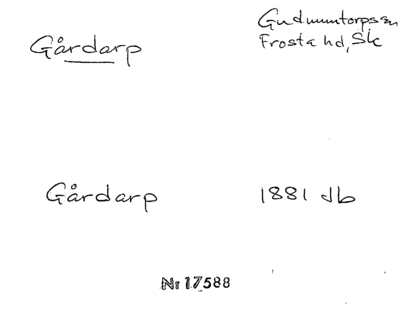 Gårdarp
Gudmuntorps sn
Frosta hd, Sk
Gårdarp
1881 Jb
Nr 17588